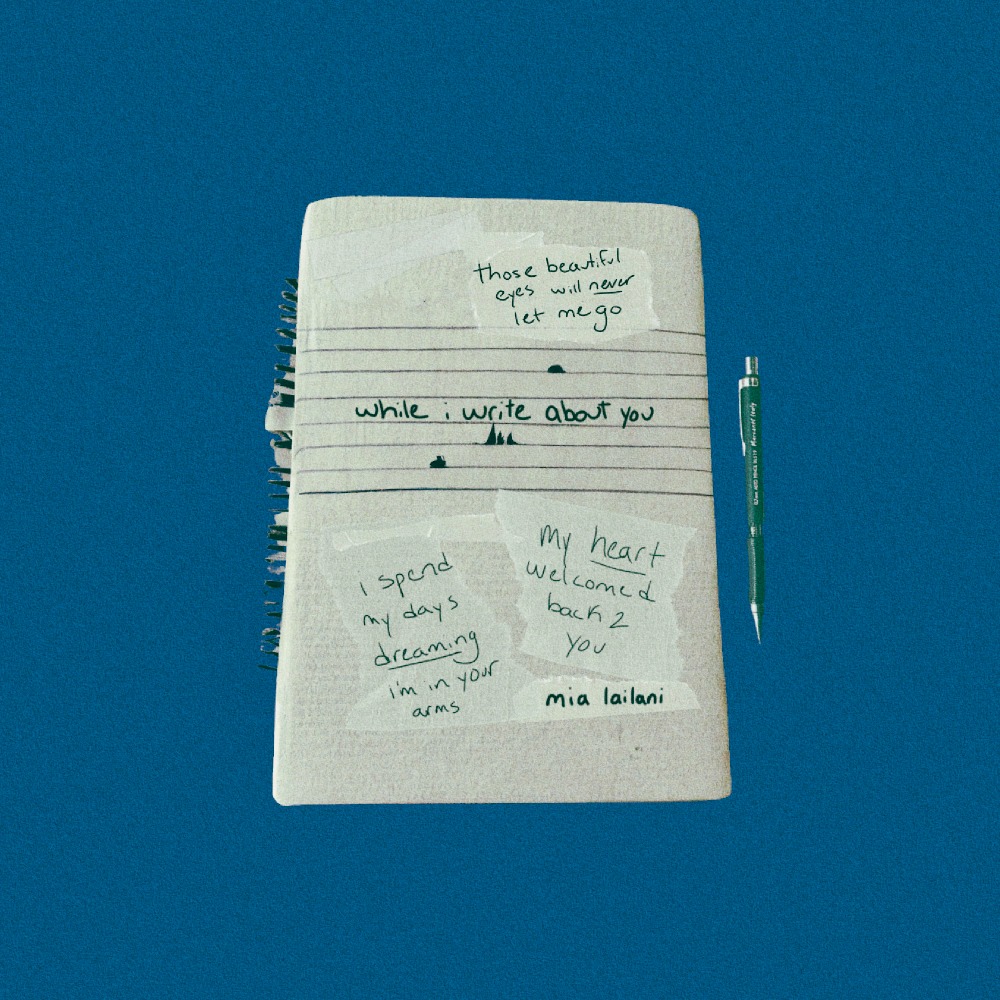 those beautiful
eyes will never
let me go
while i write about you
i spend
my days
dreaming
i'm in your
arms
My heart
welcomed
back 2
you
mia lailani